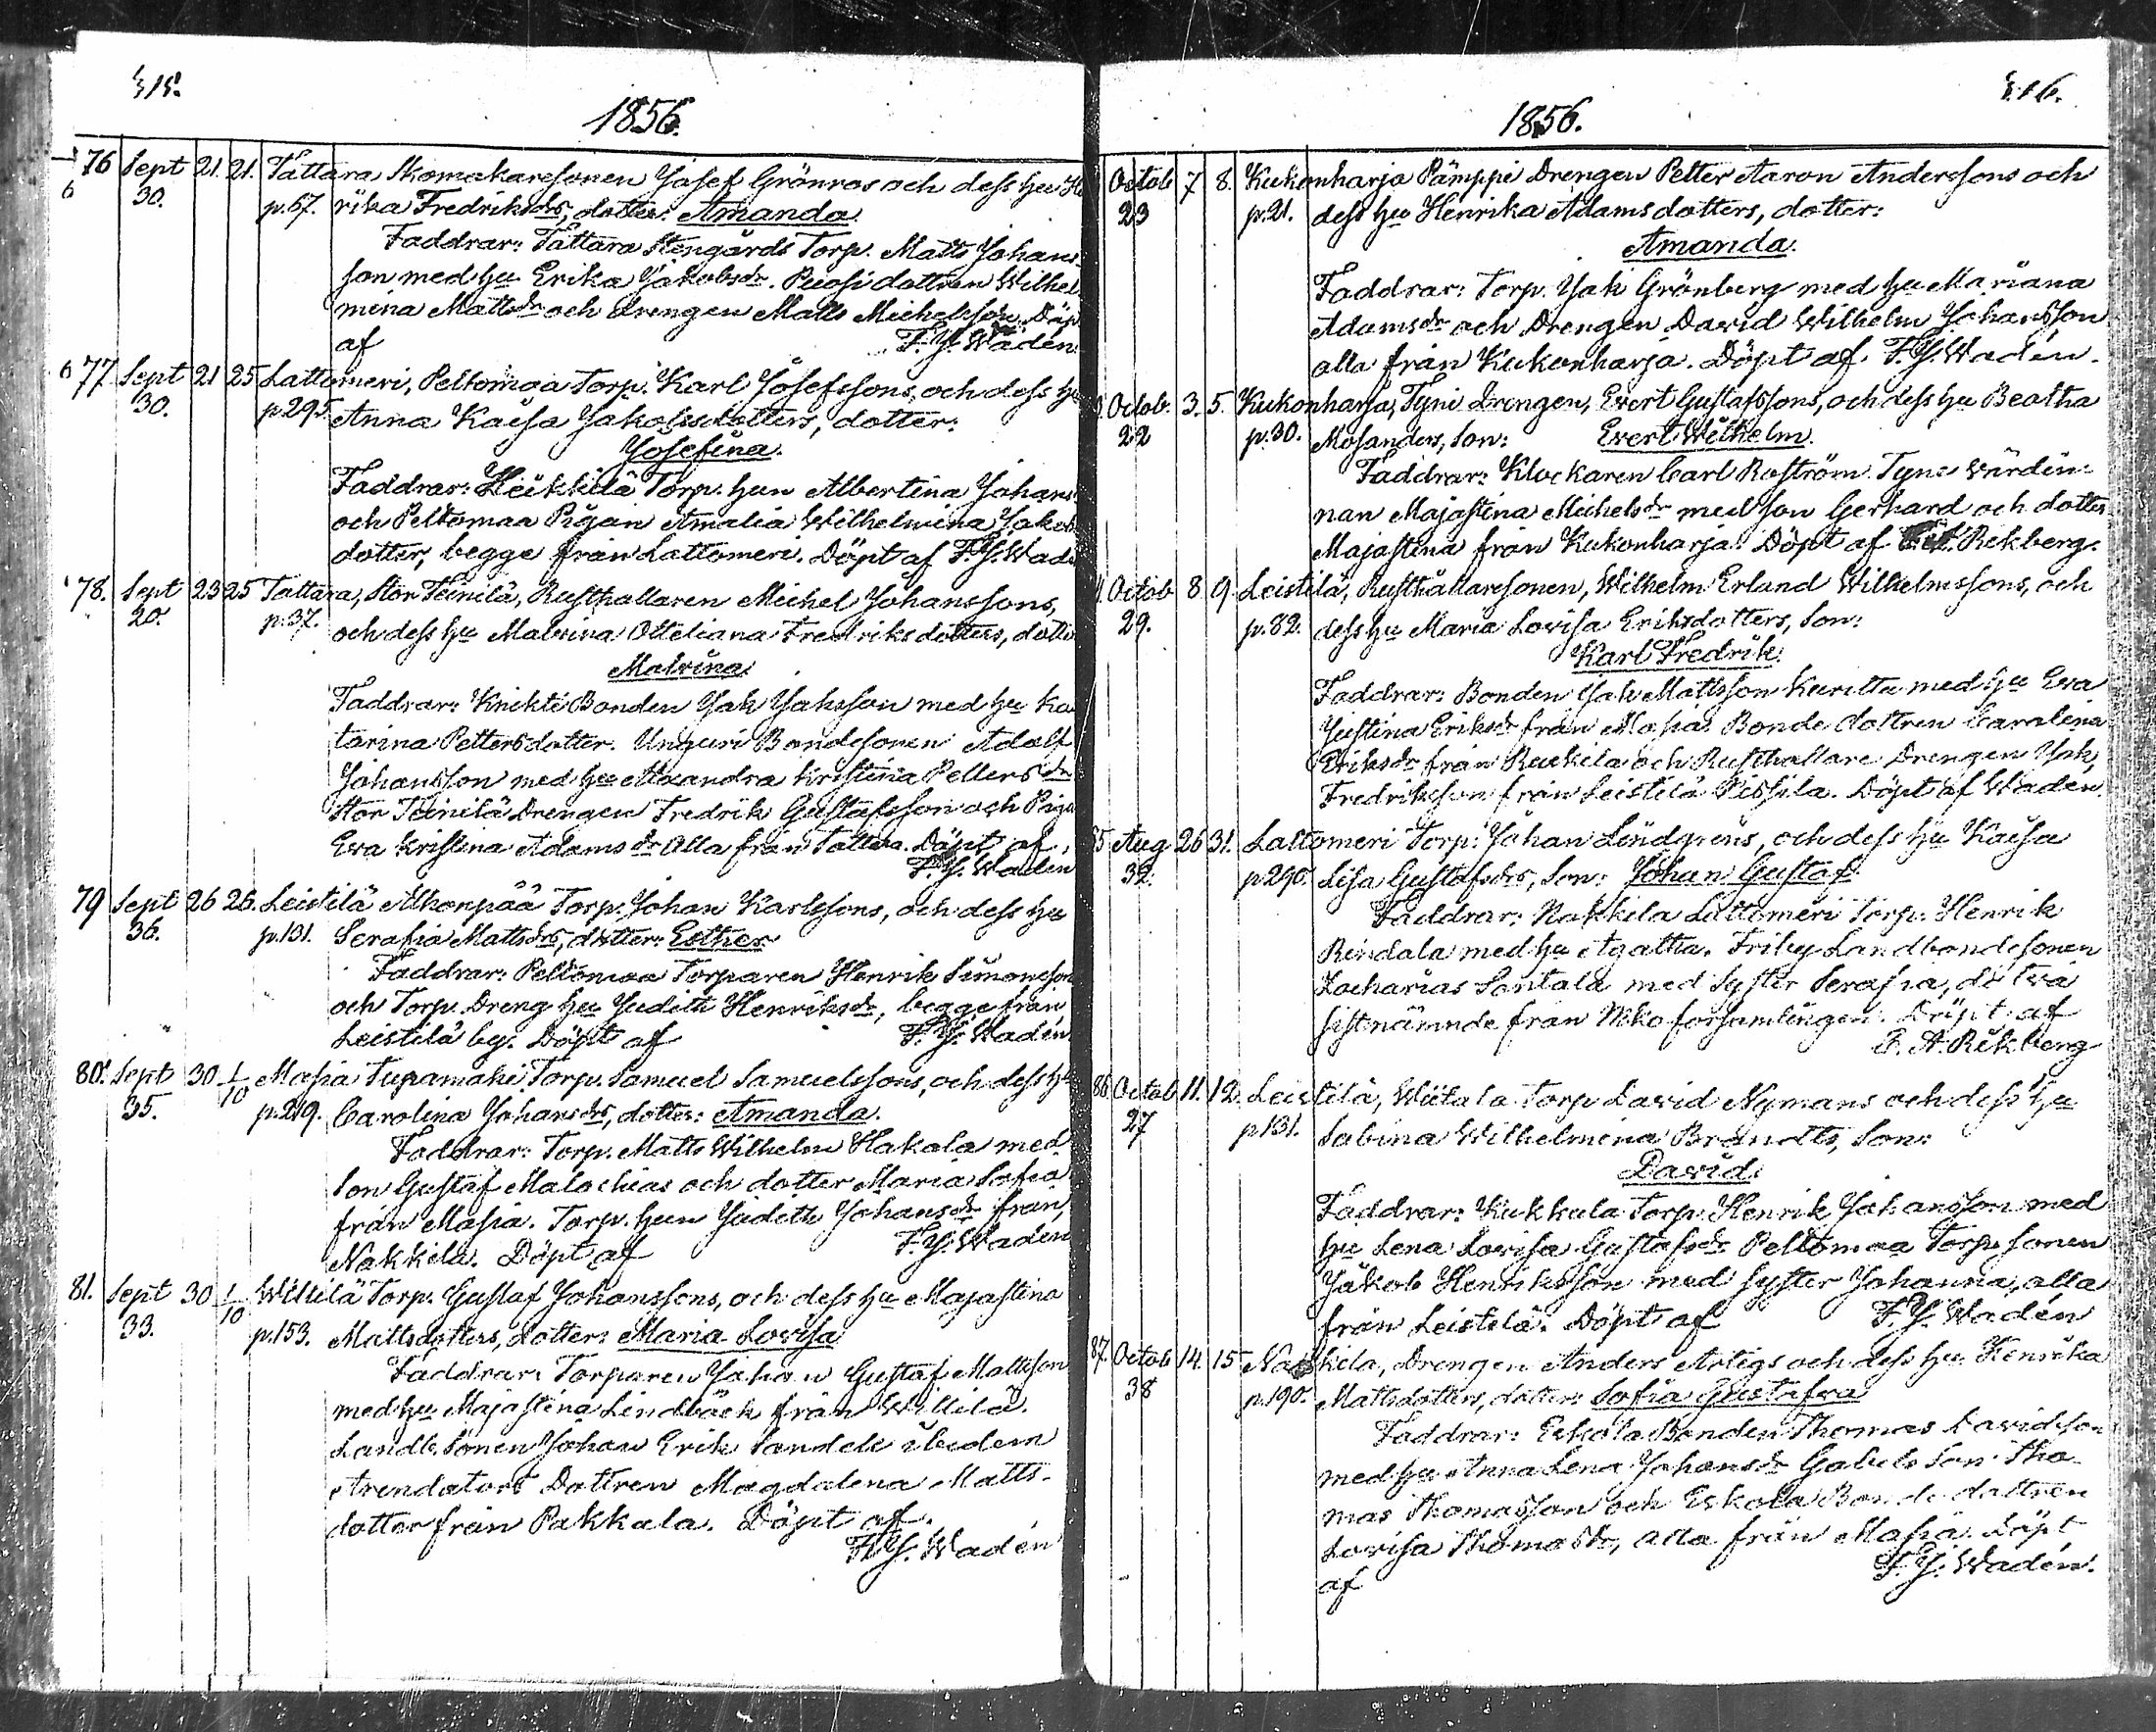 315.
1856.
76 Sept 21. 21. Tattara Skomakaresonen Josef Grönros och dess hu He
6 30. p.57. rika Fredriksdrs, dotter: Amanda.
Faddrar: Tattara Stengårds Torp. Matts Johans-
son med hu Erika Jakobsdr. Puosi dottren Wilhel
mina Mattsdr och drengen Matts Michelsson. Döp
af F. J. Wadén
6 77 Sept 21 25 Lattomeri, Peltomaa Torp. Karl Josefssons, och dess hu
30. p295. Anna Kaisa Jakobsdotters, dotter:
Josefina.
Faddrar: Heikkilä Torp. hun Albertina Johans
och Peltomaa Pigan Amalia Wilhelmina Jakobs
dotter, begge från Lattomeri. Döpt af F. J. Wad
78. Sept 23 25 Tattara, Stor Teinilä, Rusthållaren Michel Johanssons,
20. p.37. och dess hu Malvina Otteliana Fredriksdotters, dotter
Malvina
Faddrar: Knihti Bonden Jak Jaksson med hu Ka
tarina Pettersdotter. Unguri Bondesonen Adolf
Johansson med hu Alexandra Kristina Pettersdr
Stor Teinilä Drengen Fredrik Gustafsson och Piga
Eva Kristina Adamsdr Alla från Tattara. Döpt af.
F. J. Wadén
79 Sept 26 26. Leistilä Alhonpää Torp. Johan Karlssons, och dess hu
36. p.131. Serafia Mattsdrs, dotter: Esther
Faddrar: Peltomaa Torparen Henrik Simonsson
och Torp. Dreng hu Judith Henriksdr, begge från
Leistilä by. Döpt af F. J. Wadén
80. Sept 30 1/10 Masia Tupamäki Torp. Samuel Samuelssons, och dess hu
35. p.219. Carolina Johansdrs, dotter: Amanda.
Faddrar: Torp. Matts Wilhelm Hakala med
son Gustaf Malachias och dotter Maria Sofia
från Masia. Torp. hun Judith Johansdr från
Nakkila. Döpt af F. J. Wadén
81. Sept 30 1/10 Willilä Torp. Gustaf Johanssons, och dess hu Majastina
33. p.153. Mattsdotters, dotter: Maria Lovisa
Faddrar: Torparen Johan Gustaf Mattsson
med hu Majastina Lindbäck från Willilä.
Landb. Sonen Johan Erik Sandell ibidem
Arendators Dottren Magdalena Matts-
dotter från Pakkala. Döpt af.
F. J. Wadén
316.
1856.
Octob 7 8. Kukonharja Pämppi Drengen Petter Aaron Anderssons och
23 p.21. dess hu Henrika Adamsdotters, dotter:
Amanda.
Faddrar: Torp. Jak Grönberg med hu Mariana
Adamsdr och Drengen David Wilhelm Johansson
alla från Kukonharja. Döpt af F. J. Wadén.
Octob. 3. 5. Kukonharja, Tyni Drengen, Evert Gustafssons, och dess hu Beatha
22 p.30. Mosanders, son: Evert Wilhelm.
Faddrar: Klockaren Carl Roström. Tyni Wärdin-
nan Majastina Michelsdr med son Gerhard och dotter
Majastina från Kukonharja. Döpt af Rekberg.
Octob 8 9. Leistilä, Rusthållaresonen, Wilhelm Erland Wilhelmssons, och
29. p.82. dess hu Maria Lovisa Eriksdotters, son:
Karl Fredrik.
Faddrar: Bonden Jak Mattsson Kuritta med hu Eva
Justina Eriksdr från Masia. Bonde dottren Carolina
Eriksdr från Ruskila och Rusthållare Drengen Jak
Fredriksson från Leistilä Pissila. Döpt af Wadén.
85 Aug 26 31. Lattomeri Torp: Johan Lindgrens, och dess hu Kaisa
32. p290. Lisa Gustafsdrs, son: Johan Gustaf.
Faddrar: Nakkila Lattomeri Torp: Henrik
Rindala med hu Agatha. Friby Landbondesonen
Zacharias Santala med syster Serafia, de två
sistnämnde från Mko församlingen. Döpt af
E. A. Rekberg
86 Octob 11. 12. Leistilä, Wiitala Torp David Nymans och dess hu
27 p131. Sabina Wilhelmina Brandts, son:
David.
Faddrar: Kukkula Torp. Henrik Johansson med
hu Lena Lovisa Gustafsdr Peltomaa Torp. sonen
Jakob Henriksson med syster Johanna, alla
från Leistilä. Döpt af F. J. Wadén
87. Octob 14. 15 Nakkila, Drengen Anders Artigs och dess hu Henrika
38 p.190. Mattsdotters, dotter: Sofia Gustafva
Faddrar: Eskola Bonden Thomas Davidsson
med hu Anna Lena Johansdr Gabels Son Tho-
mas Thomasson och Eskola Bonde dottren
Lovisa Thomasdr, alla från Masia. Döpt
af F. J. Wadén.